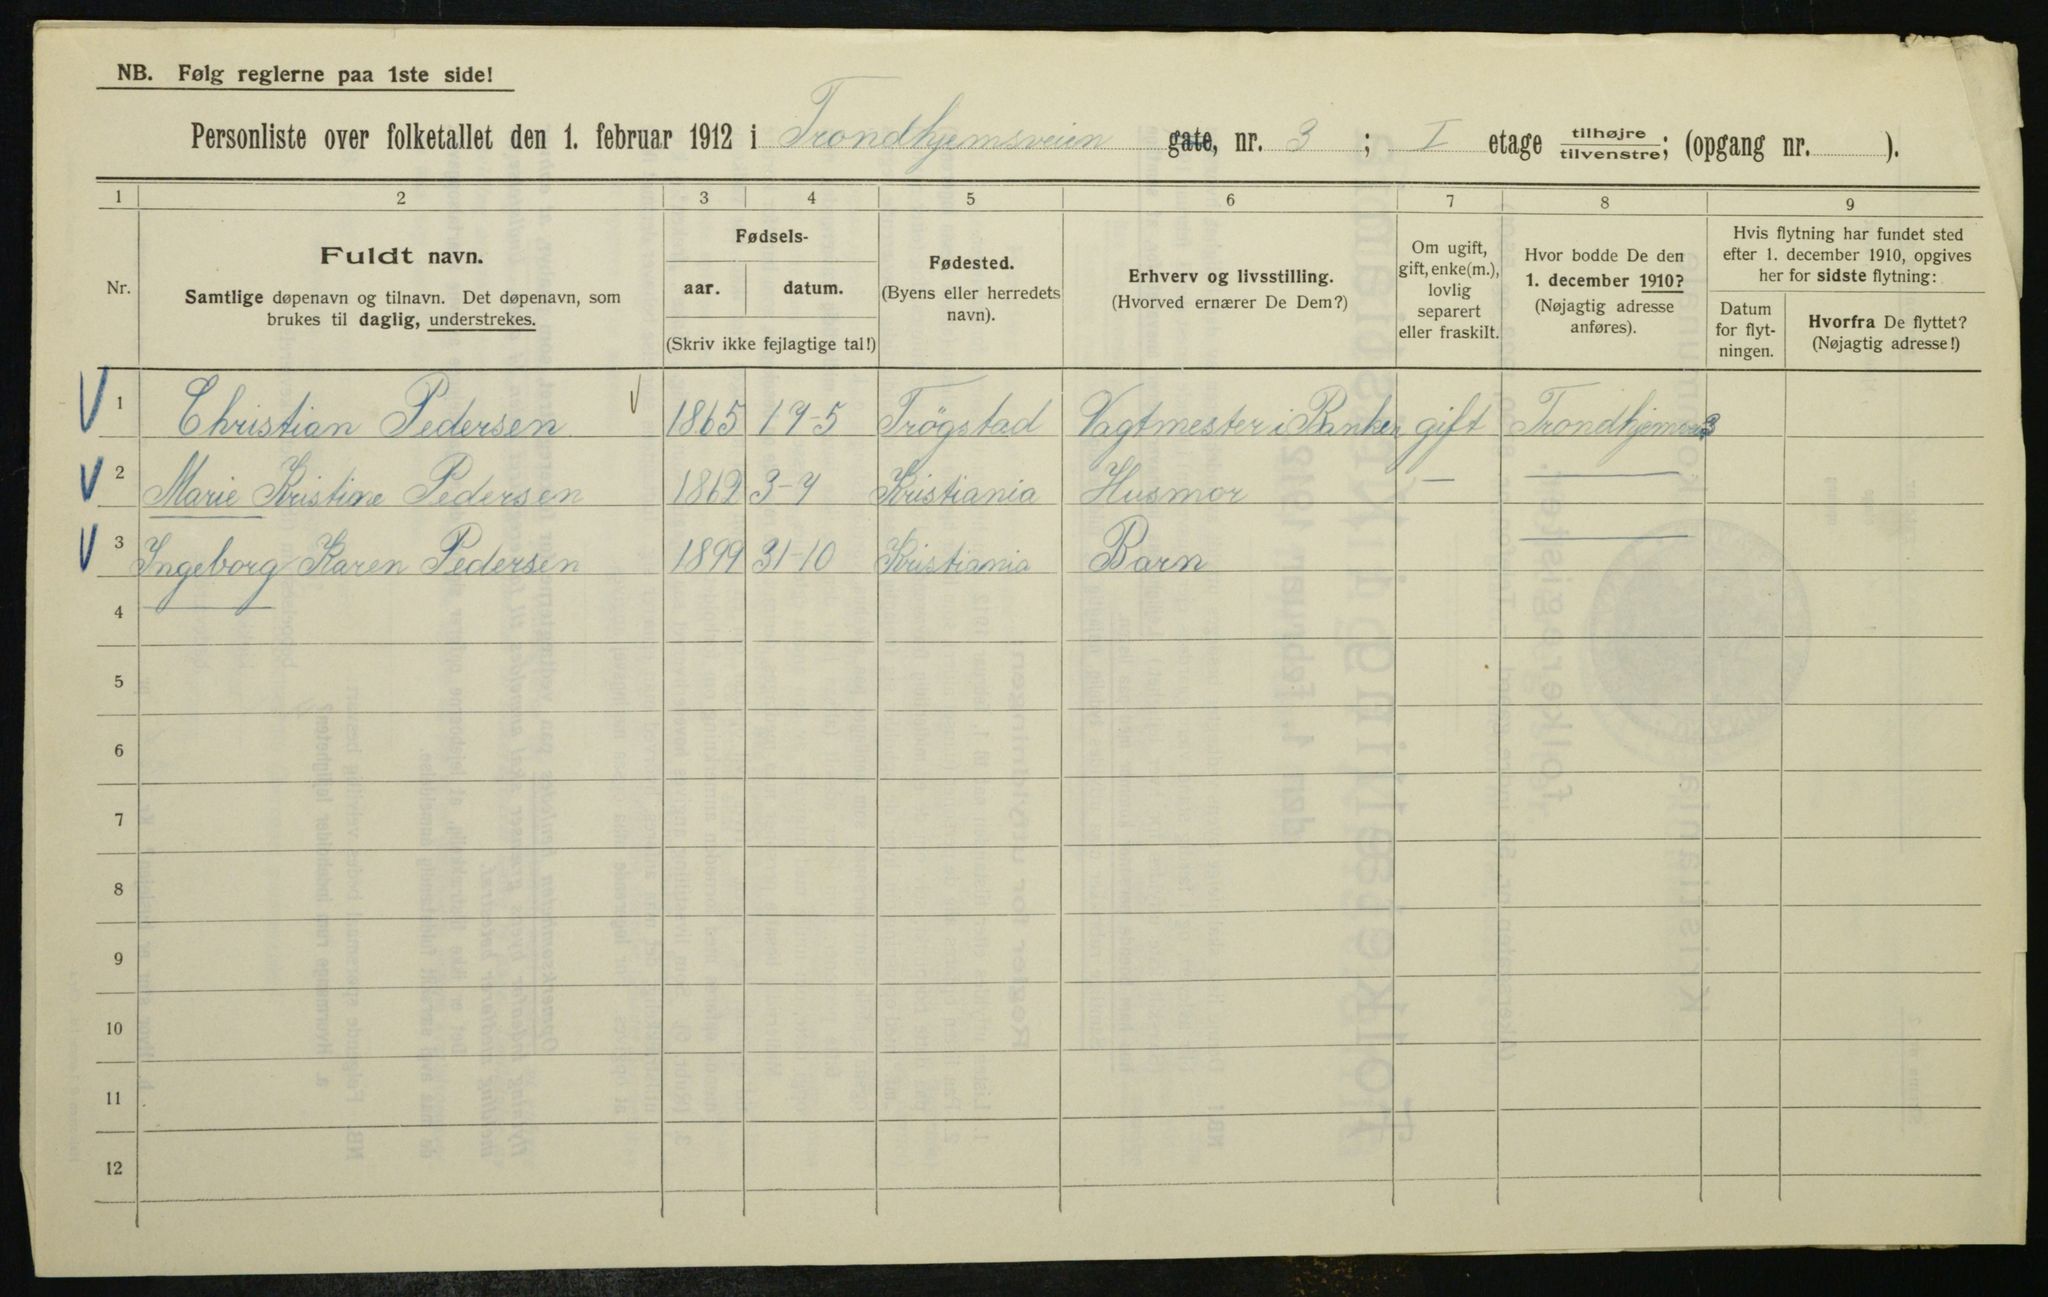 NB. Følg reglerne paa 1ste side!
Personliste over folketallet den 1. februar 1912 i Trondhjemsveien gate, nr. 3 ; I etage tilhøjre/tilvenstre; (opgang nr. ).
1 2 3 4 5 6 7 8 9
Nr.
Fuldt navn.
Samtlige døpenavn og tilnavn. Det døpenavn, som
brukes til daglig, understrekes.
Fødsels-
aar. datum.
(Skriv ikke fejlagtige tal!)
Fødested.
(Byens eller herredets
navn).
Erhverv og livsstilling.
(Hvorved ernærer De Dem?)
Om ugift,
gift, enke(m.),
lovlig
separert
eller fraskilt.
Hvor bodde De den
1. december 1910?
(Nøjagtig adresse
anføres).
Hvis flytning har fundet sted
efter 1. december 1910, opgives
her for sidste flytning:
Datum
for flyt-
ningen.
Hvorfra De flyttet?
(Nøjagtig adresse!)
1 Christian Pedersen 1865 19-5 Trøgstad Vagtmester i Banken gift 3
2 Marie Kristine Pedersen 3-7 Kristiania Husmor — —
3 Ingeborg Karen Pedersen 1899 31-10 Kristiania Barn —
4
5
6
7
8
9
10
11
12